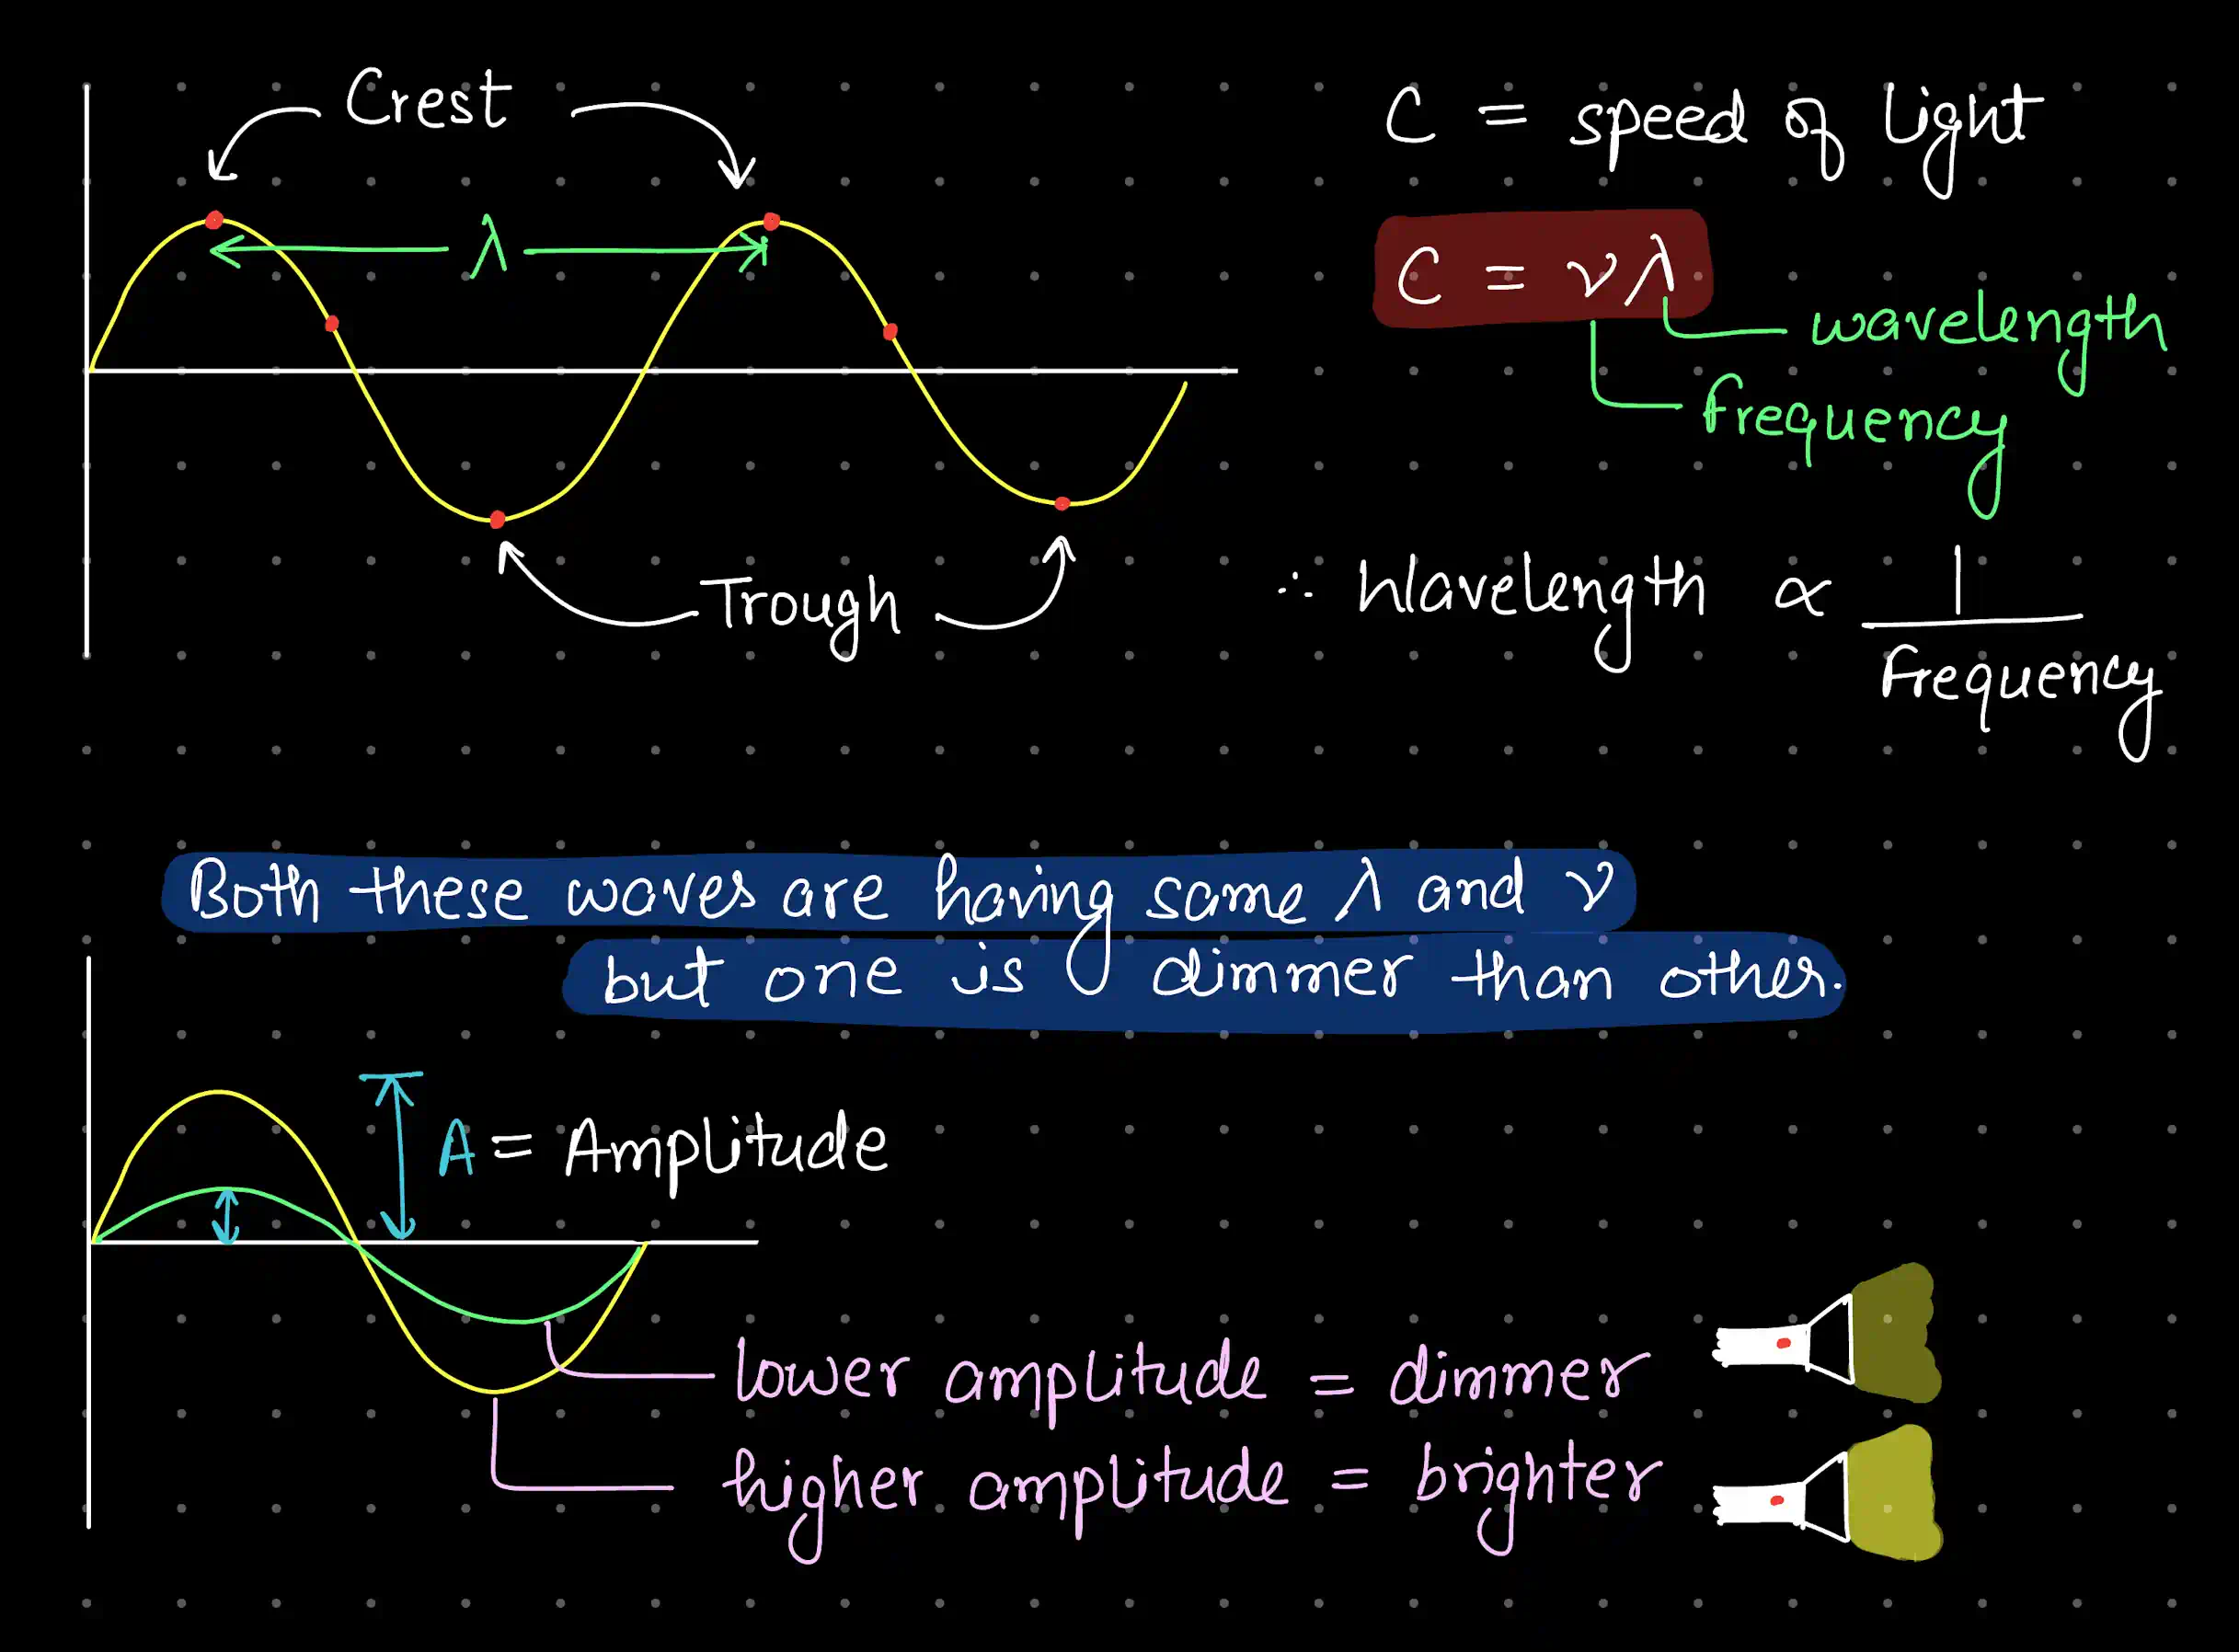 Crest
λ
Trough
C = speed of light
C = νλ
wavelength
frequency
∴ Wavelength ∝ 1
Frequency
Both these waves are having same λ and ν
but one is dimmer than other.
A = Amplitude
lower amplitude = dimmer
higher amplitude = brighter